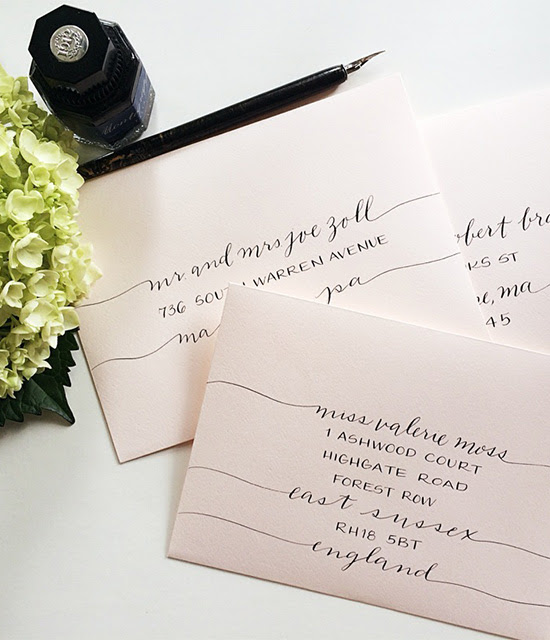 mr. and mrs joe zoll
736 SOUTH WARREN AVENUE
ma pa
ST
ma
45
miss valerie moss
1 ASHWOOD COURT
HIGHGATE ROAD
FOREST ROW
east sussex
RH18 5BT
england